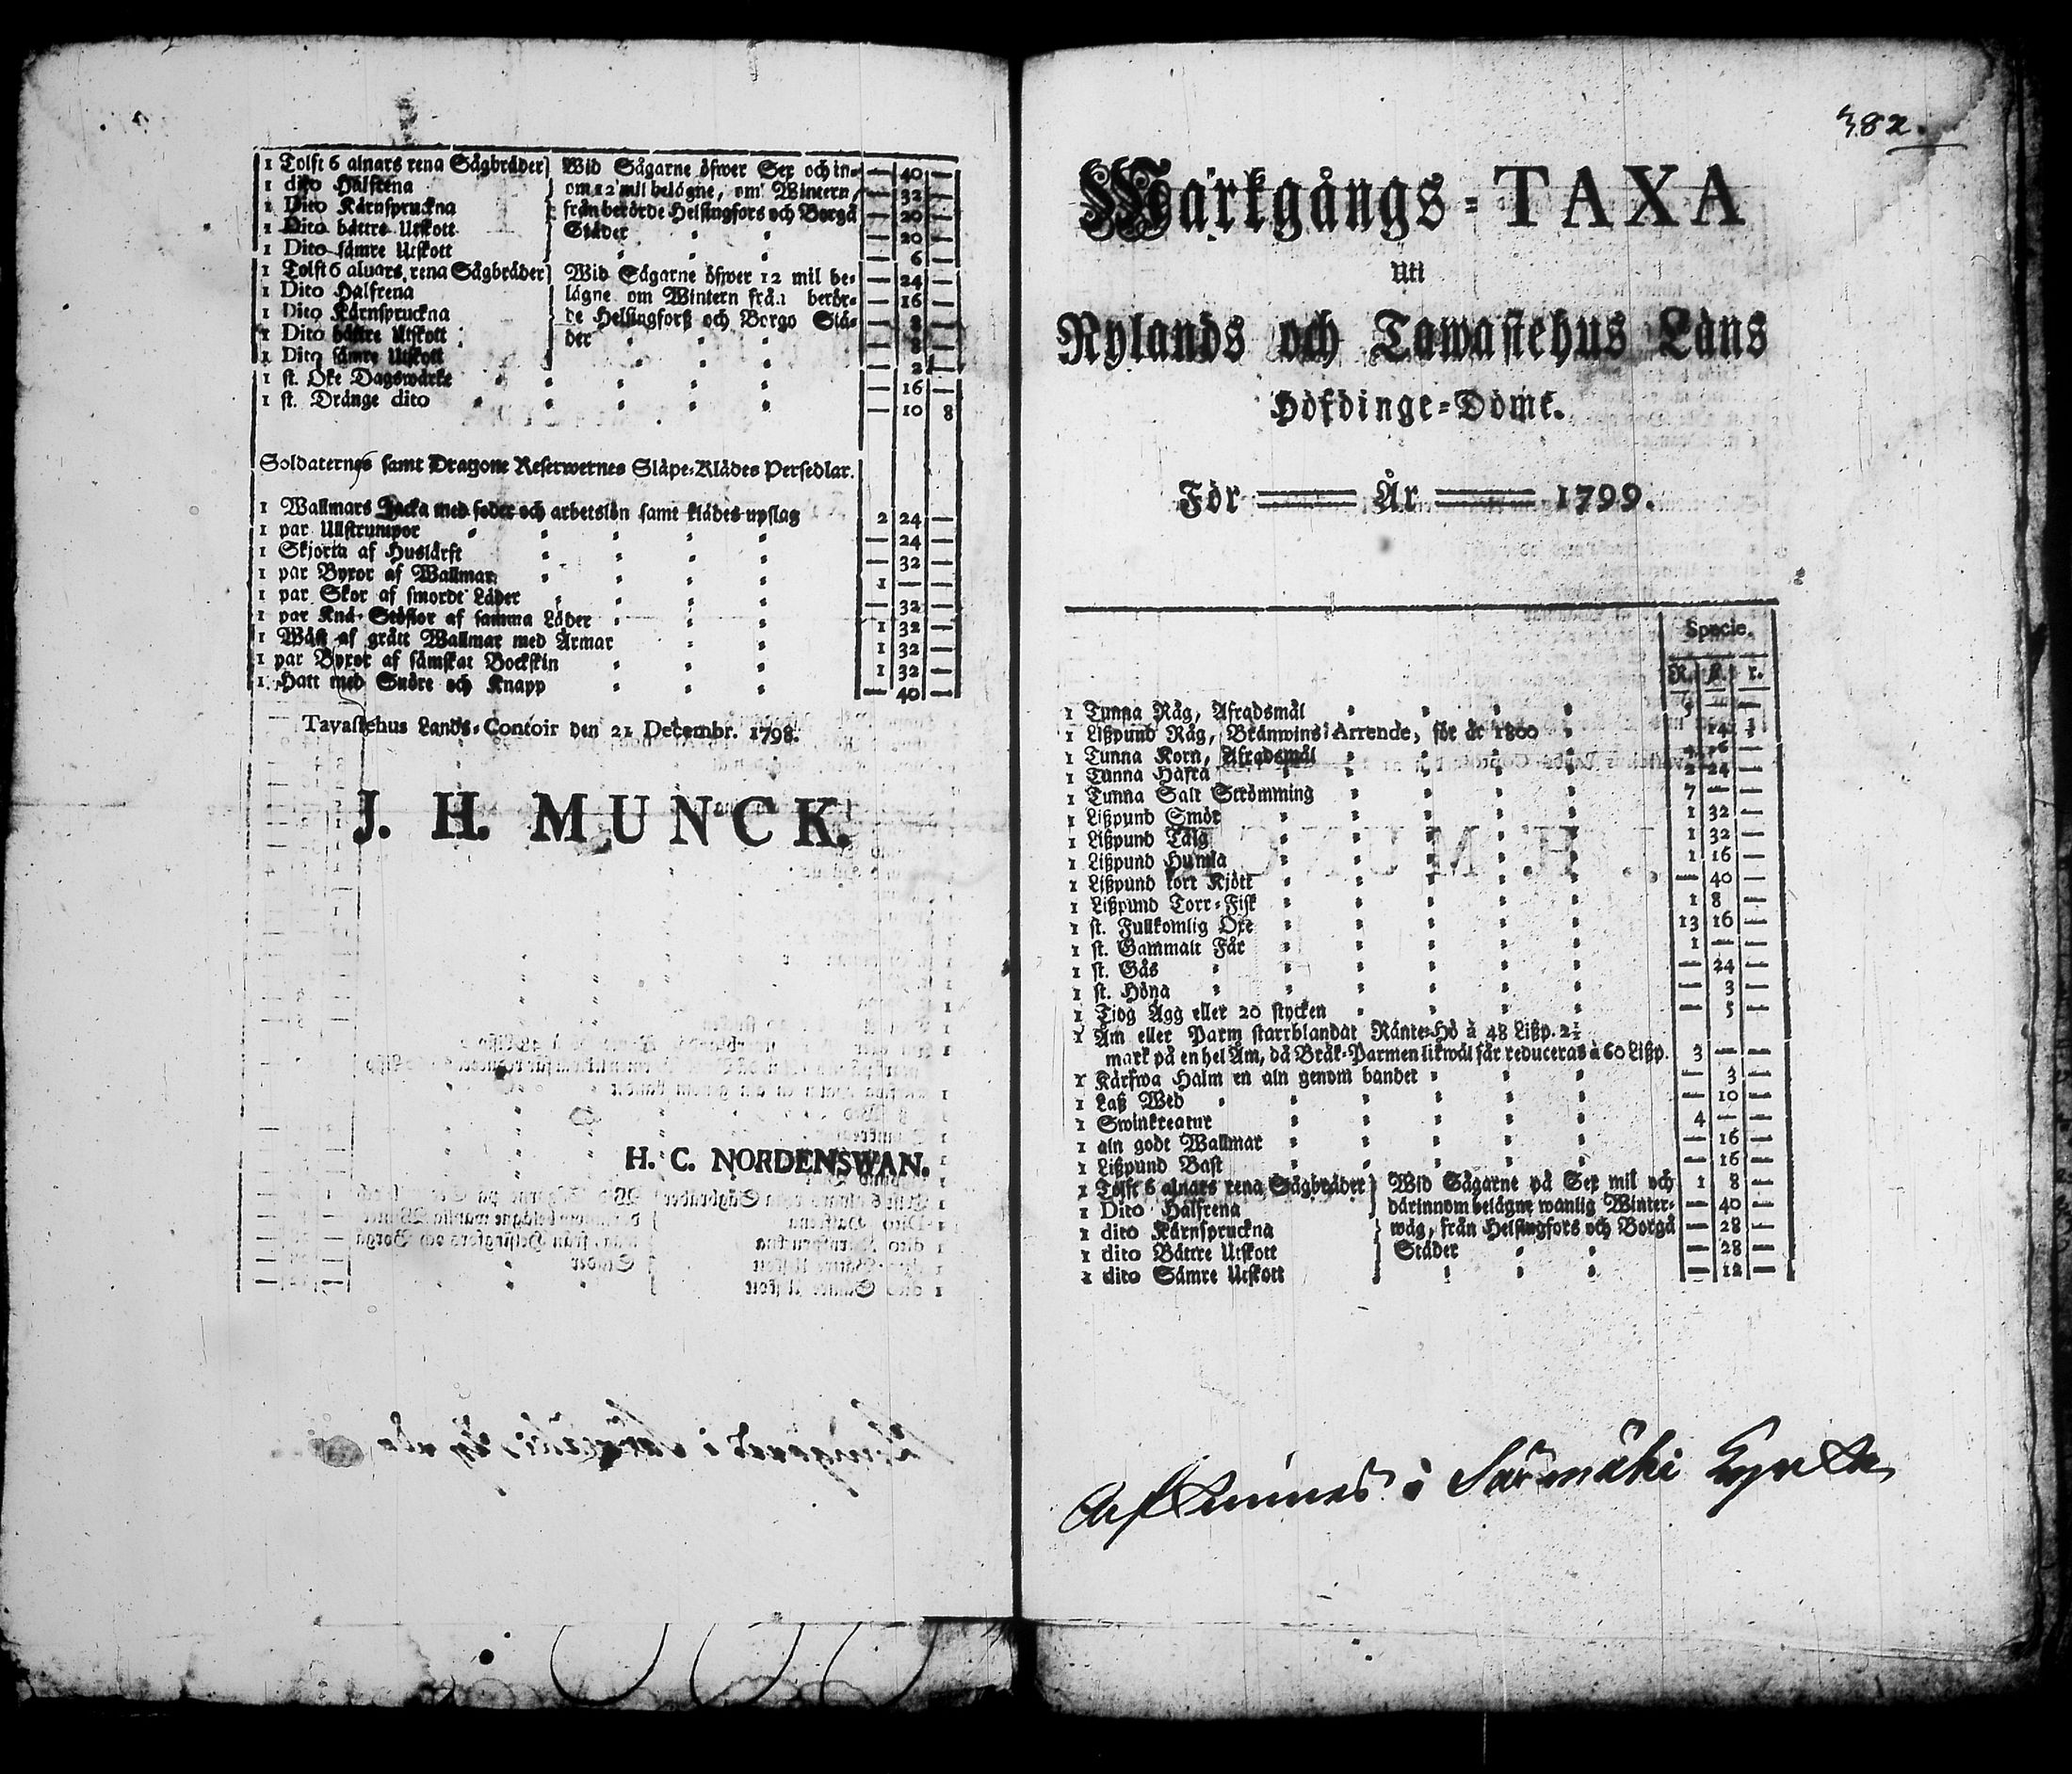 1 Tolft 6 alnars rena Sågbräder } Wid Sågarne öfwer Sex och in= — 40 —
1 dito Halfrena } om 12 mil belägne, om Wintern, — 32 —
1 Dito Kärnspruckna } från berörde Helsingfors och Borgå — 20 —
1 Dito bättre Utskott } Städer — 20 —
1 Dito sämre Utskott — 6 —
1 Tolft 6 alnars rena Sågbräder } Wid Sågarne öfwer 12 mil be= — 24 —
1 Dito Halfrena } lägne om Wintern från berör= — 16 —
1 Dito Kärnspruckna } de Helsingforß och Borgo Stä= — 8 —
1 Dito bättre Utskott } der — 8 —
1 Dito sämre Utskott — 2 —
1 st. Öke Dagswärke — 16 —
1 st. Dränge dito — 10 8
Soldaternes samt Dragone Reserwernes Släpe=Klädes Persedlar.
1 Wallmars Jacka med foder och arbetslön samt klädes upslag 2 24 —
1 par Ullstrumpor — 24 —
1 Skjorta af Huslärft — 32 —
1 par Byxor af Wallmar 1 — —
1 par Skor af smordt Läder — 32 —
1 par Knä=Stöflor af samma Läder 1 32 —
1 Wäst af grått Wallmar med Ärmar 1 32 —
1 par Byxor af sämskat Bockskin 1 32 —
1 Hatt med Snöre och Knapp — 40 —
Tavastehus Lands=Contoir den 21 Decembr. 1798.
J. H. MUNCK.
H. C. NORDENSWAN.
382.
Markgångs=TAXA
Uti
Nylands och Tawastehus Läns
Höfdinge=Döme.
För År 1799.
Specie.
R. ß. r.
1 Tunna Råg, Afradsmål 5 — —
1 Lißpund Råg, Bränwins Arrende, för år 1800 — 14
1 Tunna Korn, Afradsmål 4 16 —
1 Tunna Hafra 2 24 —
1 Tunna Salt Strömming 7 — —
1 Lißpund Smör 1 32 —
1 Lißpund Talg 1 32 —
1 Lißpund Humla 1 16 —
1 Lißpund tort Kjött — 40 —
1 Lißpund Torr=Fisk 1 8 —
1 st. Fullkomlig Oxe 13 16 —
1 st. Gammalt Får 1 — —
1 st. Gås — 24 —
1 st. Höna — 3 —
1 Tiog Ägg eller 20 stycken — 5 —
1 Åm eller Parm starrblandat Ränte=Hö à 48 Lißp. 2½
mark på en hel Åm, då Bräk=Parmen likwäl får reduceras à 60 Lißp. 3 — —
1 Kärfwa Halm en aln genom bandet — 3 —
1 Laß Wed — 10 —
1 Swinkreatur 4 — —
1 aln godt Wallmar — 16 —
1 Lißpund Bast — 16 —
1 Tolft 6 alnars rena Sågbräder } Wid Sågarne på Sex mil och 1 8 —
1 Dito Halfrena } därinnom belägne wanlig Winter= — 40 —
1 dito Kärnspruckna } wäg, från Helsingfors och Borgå — 28 —
1 dito Bättre Utskott } Städer — 28 —
1 dito Sämre Utskott — 12 —
i Särmäki